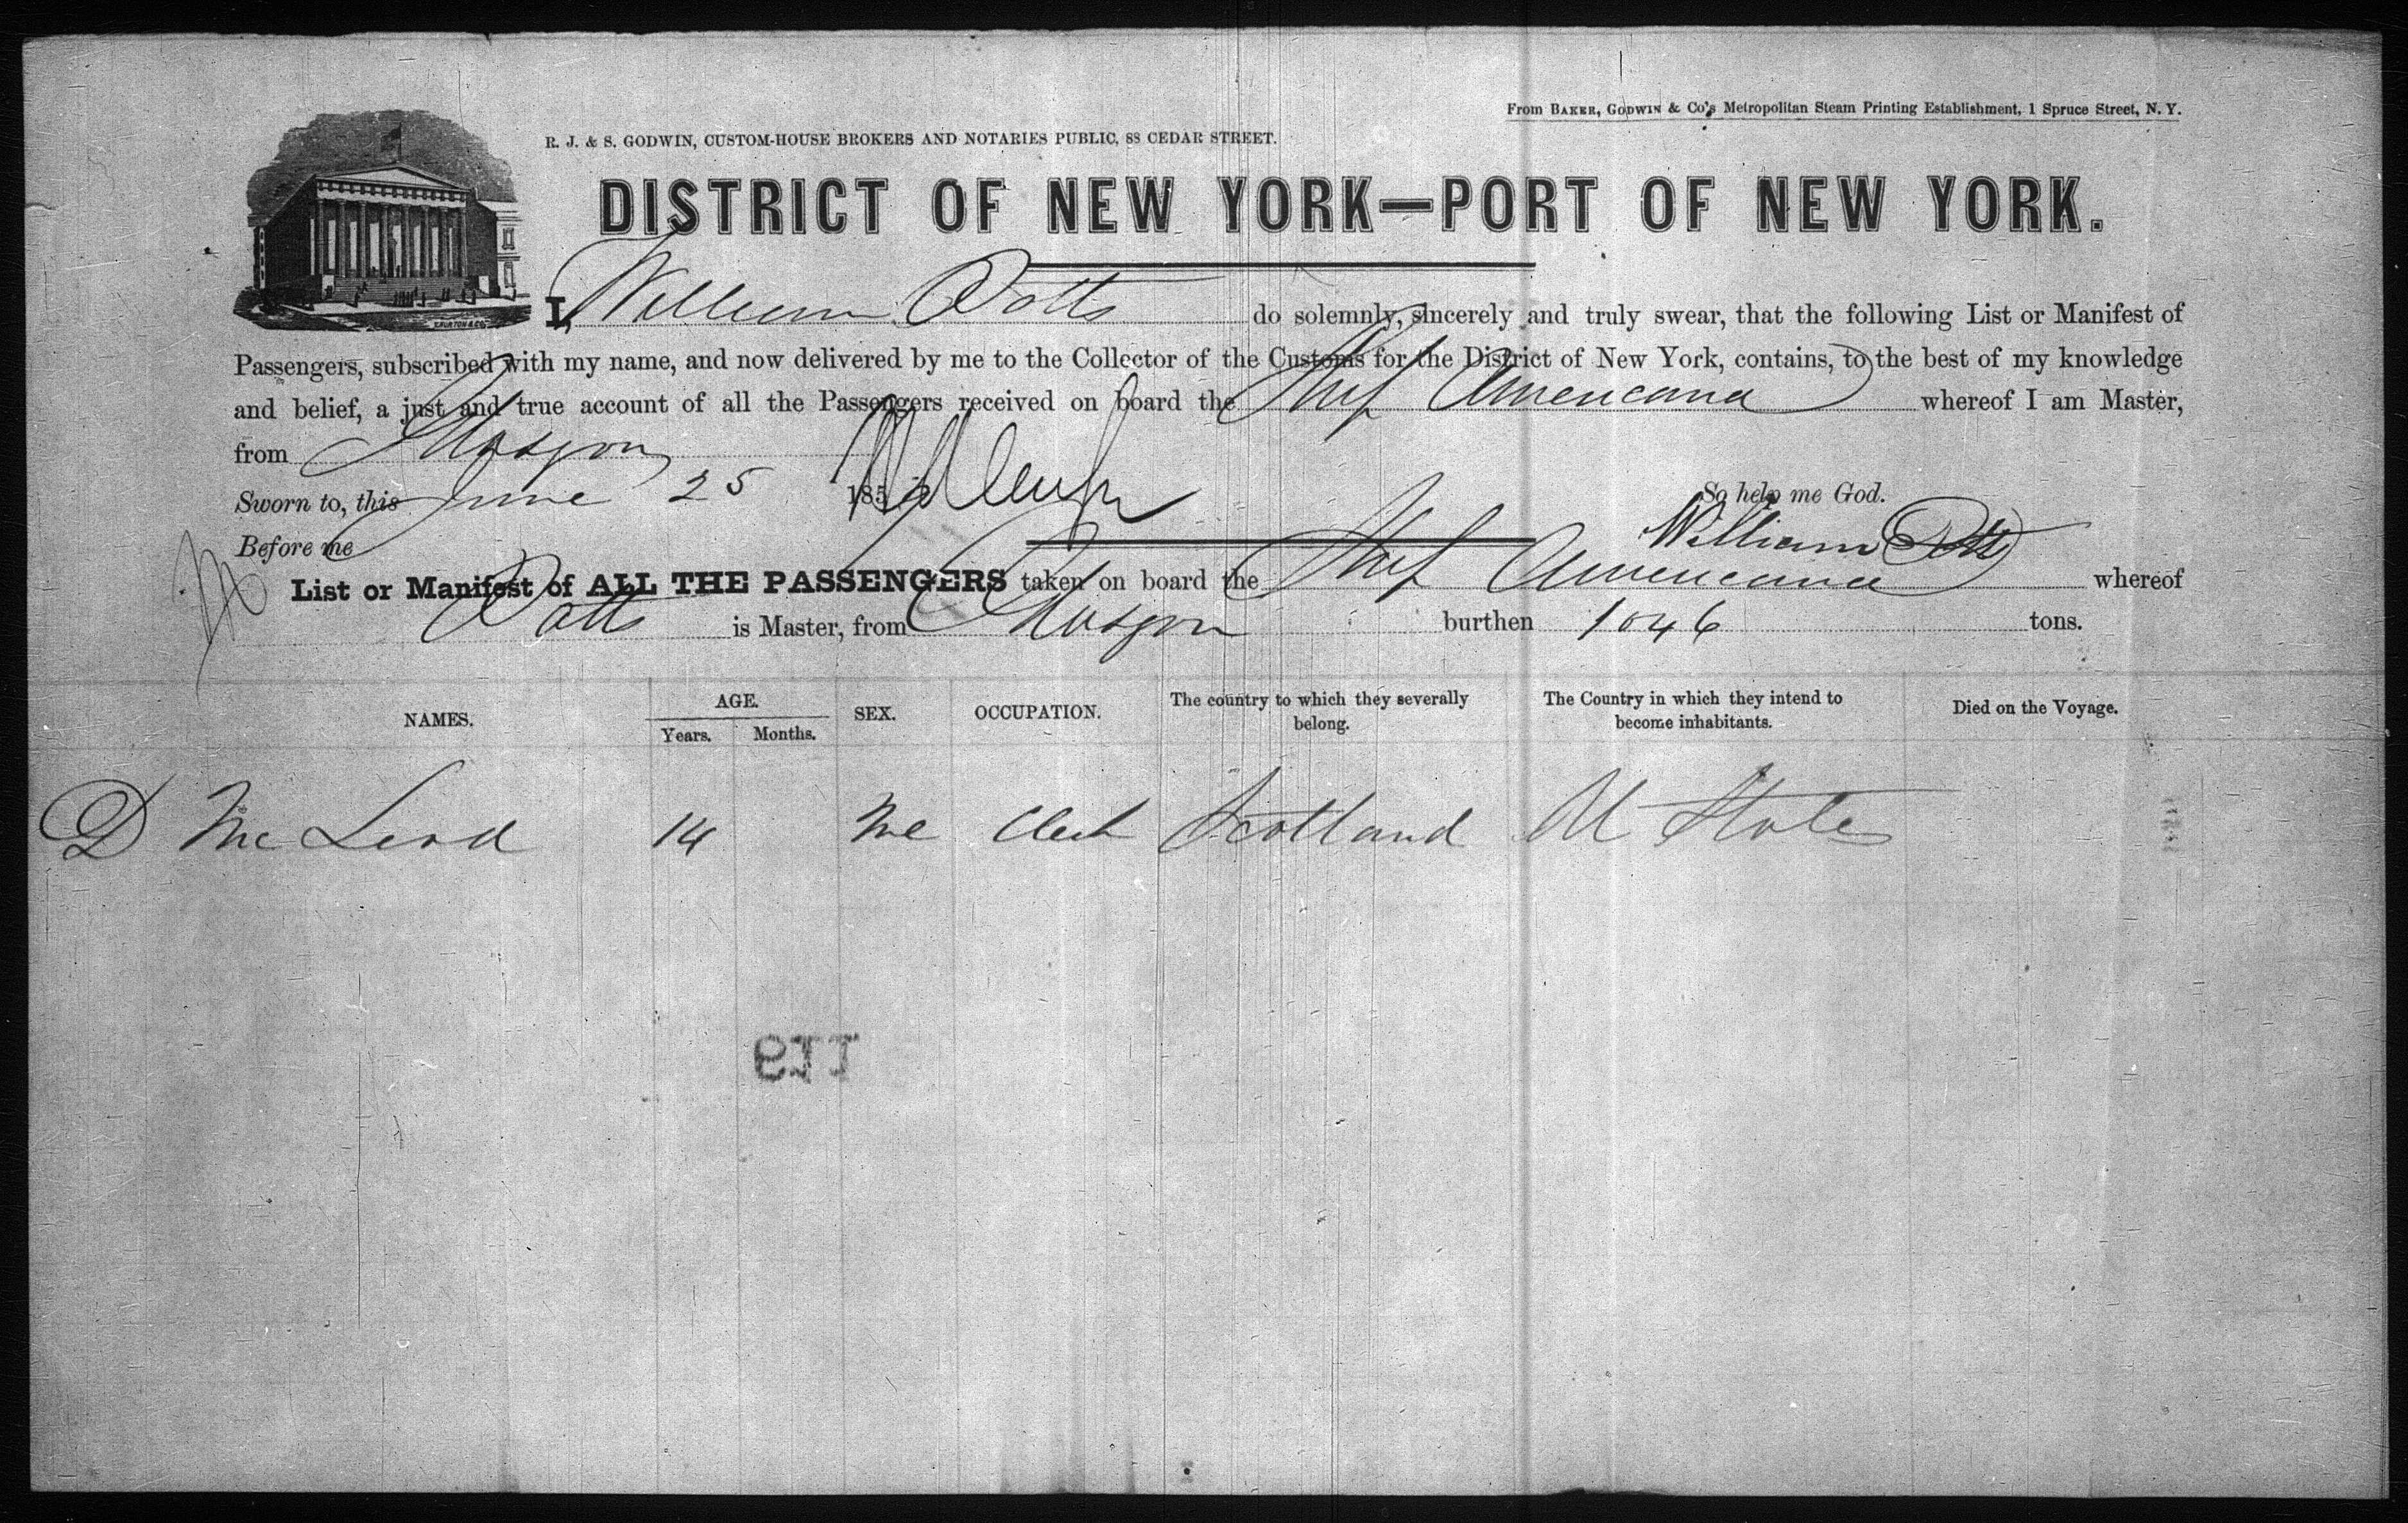 From BAKER, GODWIN & Co's Metropolitan Steam Printing Establishment, 1 Spruce Street, N. Y.
R. J. & S. GODWIN, CUSTOM-HOUSE BROKERS AND NOTARIES PUBLIC, 88 CEDAR STREET.
DISTRICT OF NEW YORK—PORT OF NEW YORK.
I, William Potts do solemnly, sincerely and truly swear, that the following List or Manifest of
Passengers, subscribed with my name, and now delivered by me to the Collector of the Customs for the District of New York, contains, to the best of my knowledge
and belief, a just and true account of all the Passengers received on board the Ship Americana whereof I am Master,
from Glasgow
Sworn to, this June 25 185 So help me God.
Before me William Potts
List or Manifest of ALL THE PASSENGERS taken on board the Ship Americana whereof
Potts is Master, from Glasgow burthen 1046 tons.
NAMES. AGE. Years. Months. SEX. OCCUPATION. The country to which they severally belong. The Country in which they intend to become inhabitants. Died on the Voyage.
D McLeod 14 Me Clerk Scotland U States
119